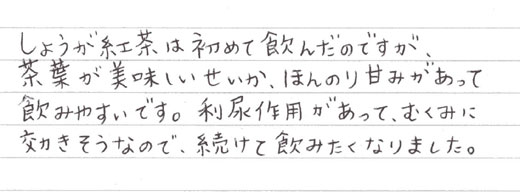 しょうが紅茶は初めて飲んだのですが、
茶葉が美味しいせいか、ほんのり甘みがあって
飲みやすいです。利尿作用があって、むくみに
効きそうなので、続けて飲みたくなりました。